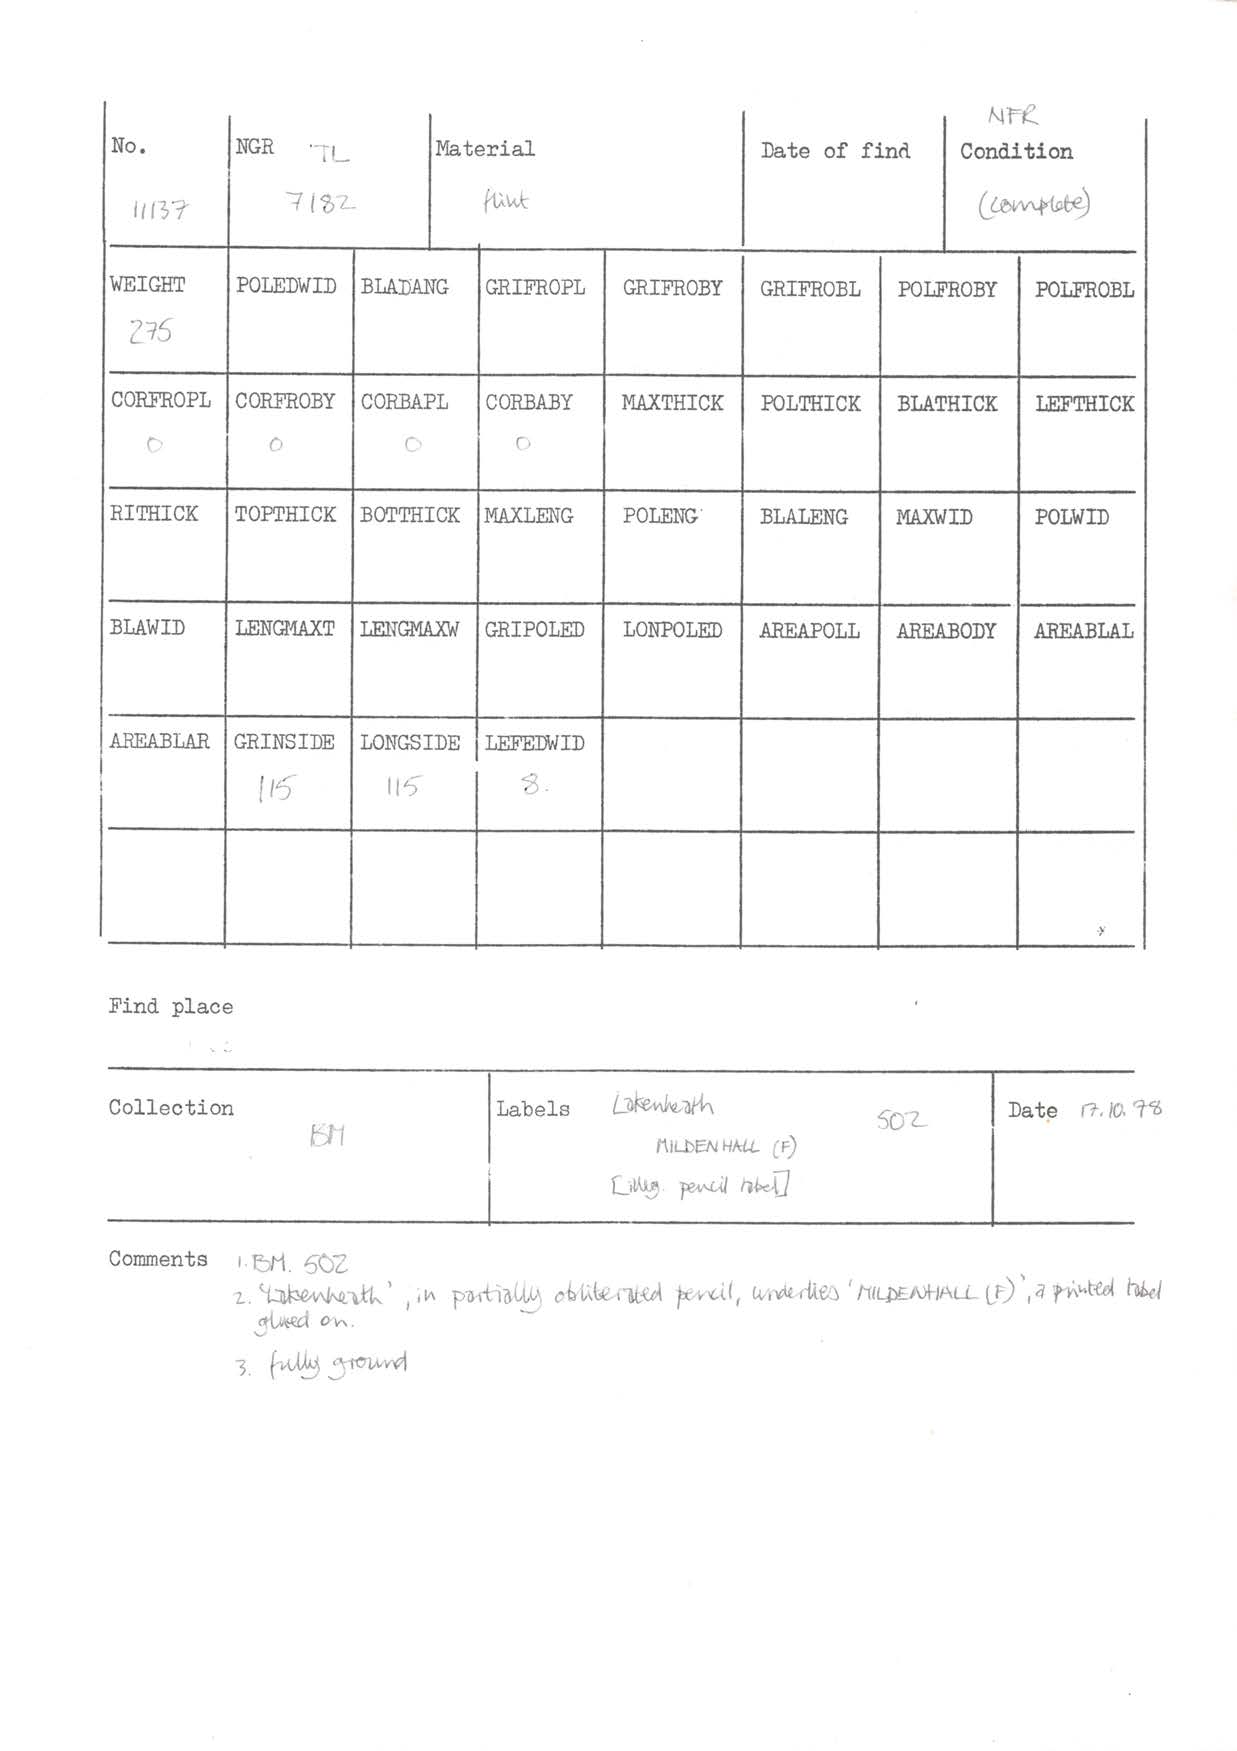 NFR
No. NGR TL Material Date of find Condition
11137 7182 flint (complete)
WEIGHT POLEDWID BLADANG GRIFROPL GRIFROBY GRIFROBL POLFROBY POLFROBL
275
CORFROPL CORFROBY CORBAPL CORBABY MAXTHICK POLTHICK BLATHICK LEFTHICK
0 0 0 0
RITHICK TOPTHICK BOTTHICK MAXLENG POLENG BLALENG MAXWID POLWID
BLAWID LENGMAXT LENGMAXW GRIPOLED LONPOLED AREAPOLL AREABODY AREABLAL
AREABLAR GRINSIDE LONGSIDE LEFEDWID
115 115 8.
Find place
Collection Labels Lakenheath 502 Date 17.10.78
BM MILDENHALL (F)
[illeg. pencil label]
Comments 1. BM. 502
2. 'Lakenheath', in partially obliterated pencil, underlies 'MILDENHALL (F)', a printed label
glued on.
3. fully ground